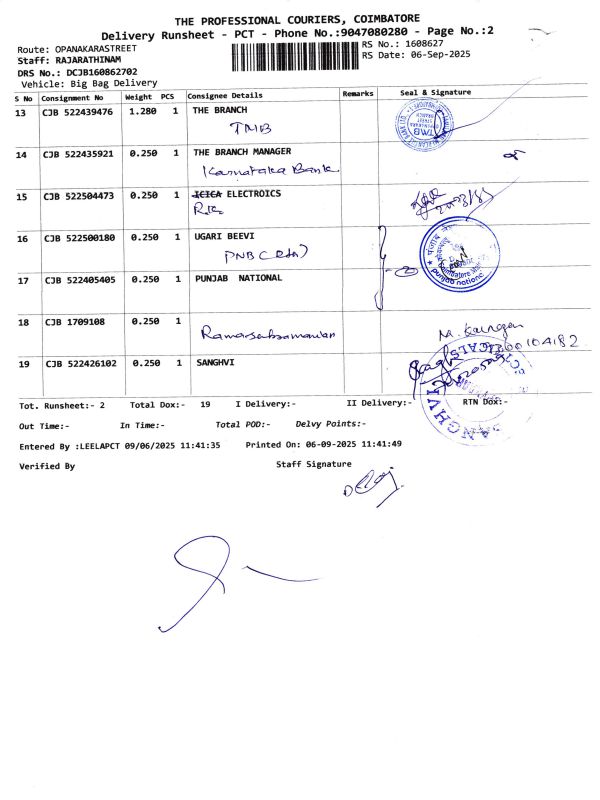 THE PROFESSIONAL COURIERS, COIMBATORE
Delivery Runsheet - PCT - Phone No.:9047080280 - Page No.:2
Route: OPANAKARASTREET
RS No.: 1608627
Staff: RAJARATHINAM
RS Date: 06-Sep-2025
DRS No.: DCJB160862702
Vehicle: Big Bag Delivery
S No Consignment No Weight PCS Consignee Details Remarks Seal & Signature
13 CJB 522439476 1.280 1 THE BRANCH
TMB
14 CJB 522435921 0.250 1 THE BRANCH MANAGER
Karnataka Bank
15 CJB 522504473 0.250 1 ICICA ELECTROICS
R.K
16 CJB 522500180 0.250 1 UGARI BEEVI
PNB
17 CJB 522405405 0.250 1 PUNJAB NATIONAL
18 CJB 1709108 0.250 1
19 CJB 522426102 0.250 1 SANGHVI
Tot. Runsheet:- 2 Total Dox:- 19 I Delivery:- II Delivery:- RTN Dox:-
Out Time:- In Time:- Total POD:- Delvy Points:-
Entered By :LEELAPCT 09/06/2025 11:41:35 Printed On: 06-09-2025 11:41:49
Verified By Staff Signature